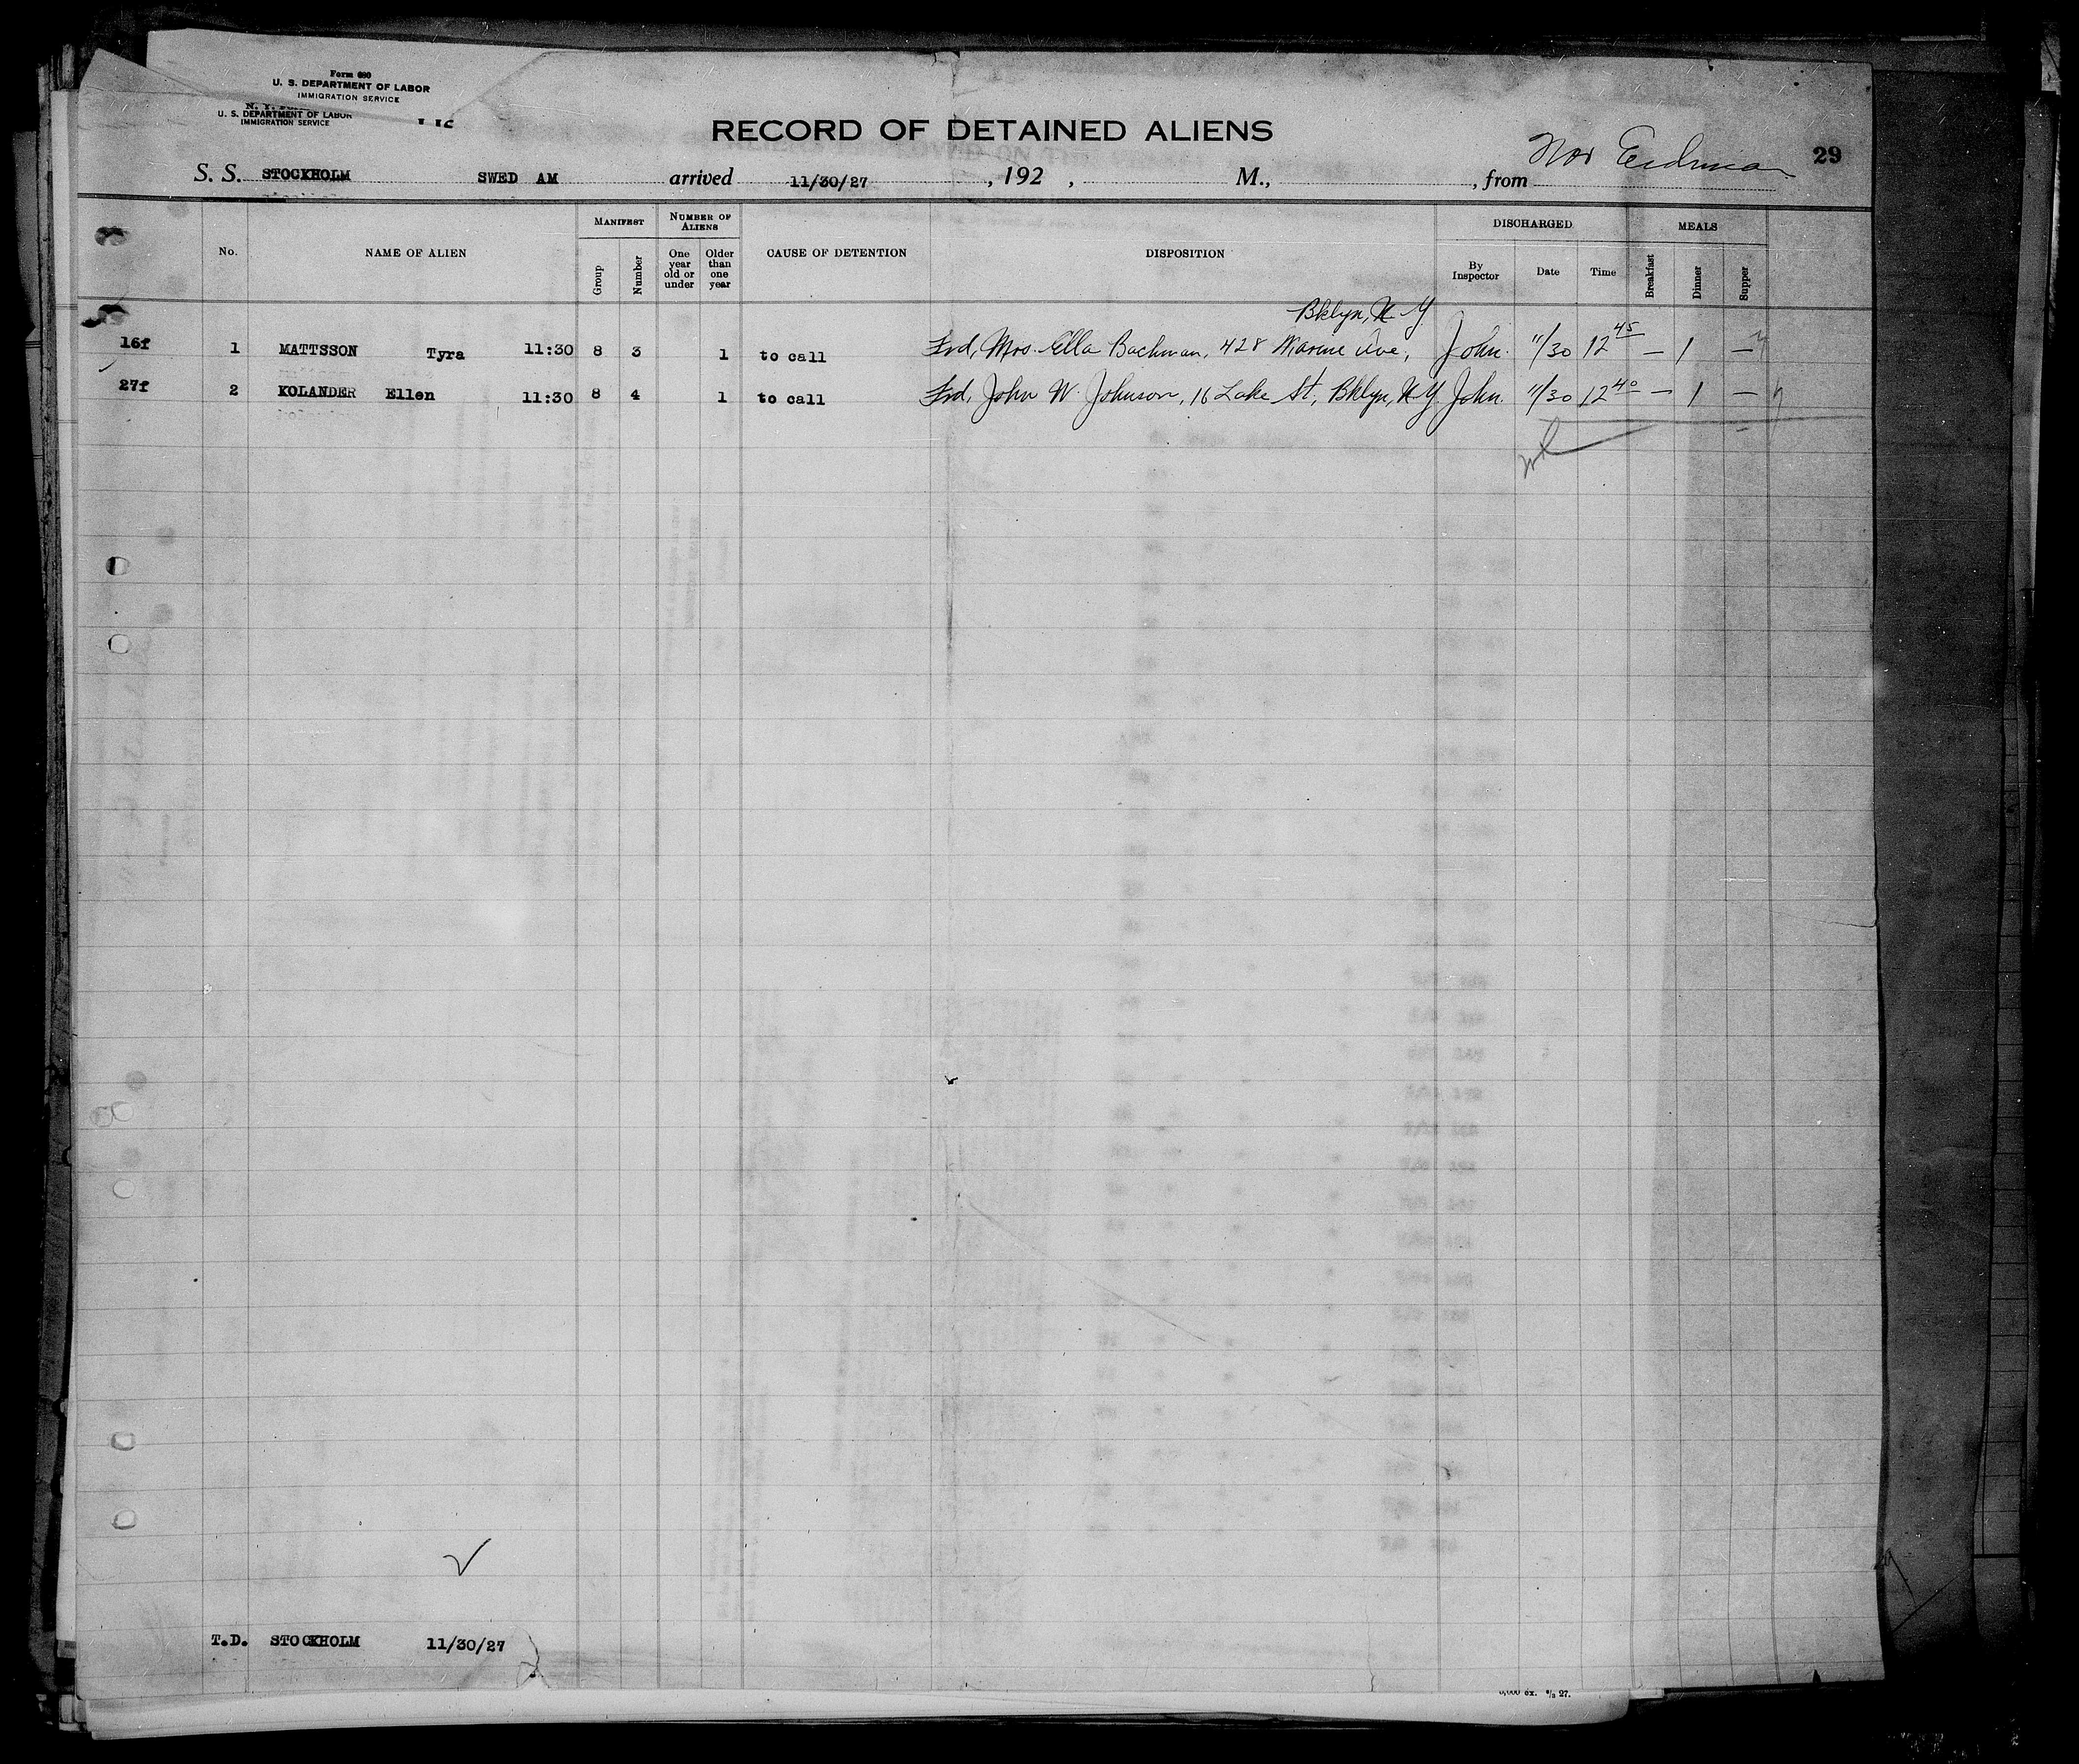 Form 680
U. S. DEPARTMENT OF LABOR
IMMIGRATION SERVICE
U. S. DEPARTMENT OF LABOR
IMMIGRATION SERVICE
RECORD OF DETAINED ALIENS
29
S. S. STOCKHOLM SWED AM arrived 11/30/27, 192 , M., , from
MANIFEST NUMBER OF ALIENS DISCHARGED MEALS
No. NAME OF ALIEN Group Number One year old or under Older than one year CAUSE OF DETENTION DISPOSITION By Inspector Date Time Breakfast Dinner Supper
Bklyn, N.Y.
16f 1 MATTSSON Tyra 11:30 8 3 1 to call Frd, Mrs. Ella Bachman, 428 Marine Ave, John. 11/30 12 45 — 1 —
27f 2 KOLANDER Ellen 11:30 8 4 1 to call Frd, John W. Johnson, 16 Lake St, Bklyn, N.Y. John. 11/30 12 40 — 1 —
T.D. STOCKHOLM 11/30/27